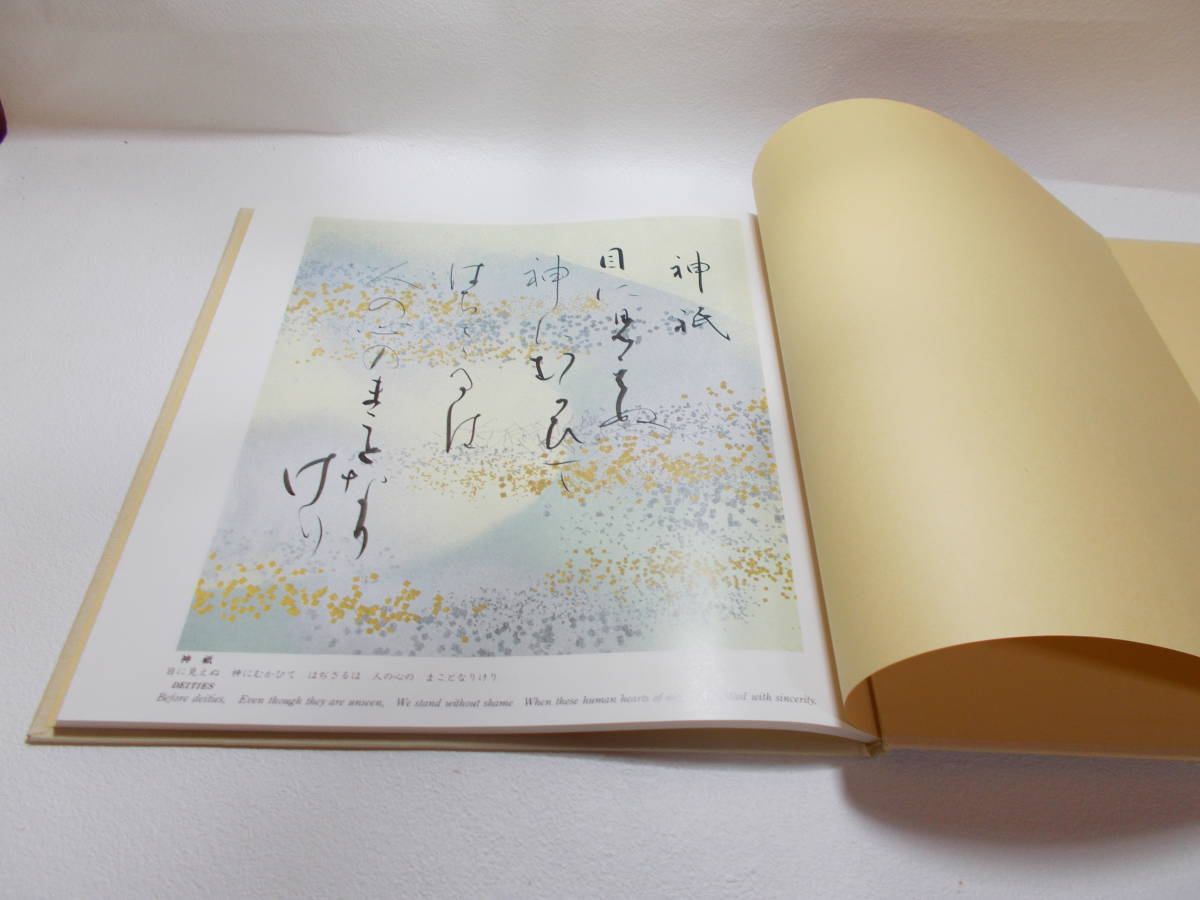 神祇
目に見えぬ
神にむかひて
はぢざるは
人の心の
まことなり
けり
神 祇
目に見えぬ 神にむかひて はぢざるは 人の心の まことなりけり
DEITIES
Before deities, Even though they are unseen, We stand without shame When these human hearts of with sincerity.